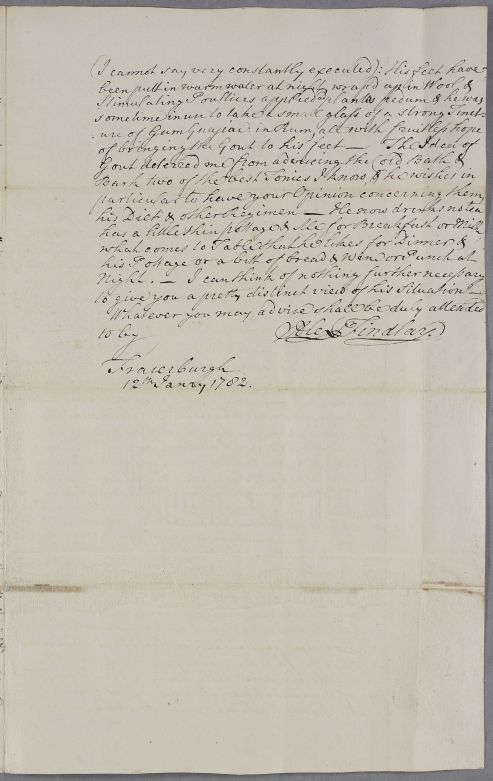 (I cannot say very constantly executed): His feet have
been putt in warm water at night wrap'd up in Wool, &
Stimulating Poultices applied plantis pedum & he was
sometime in use to take a small glass of a strong Tinct-
ure of Gum Guajac: in Rum all with fruitless hope
of bringing the Gout to his feet — The Idea of
Gout deterred me from adviceing the Cold Bath &
Bark two of the best Tonics I know, & he wishes in
particular to have your Opinion concerning them,
his Diet & other Regimen — He now drinks no tea
has a little thin pottage & Ale for Breakfast or Milk
what comes to Table that he likes for Dinner &
his Pottage or a bit of bread & Wine or Punch at
Night. — I can think of nothing further necessary
to give you a pretty distinct view of his Situation —
Whatever you may advise shall be duly attended
to by
Alex Findlay
Fraserburgh
12th Janry 1782.